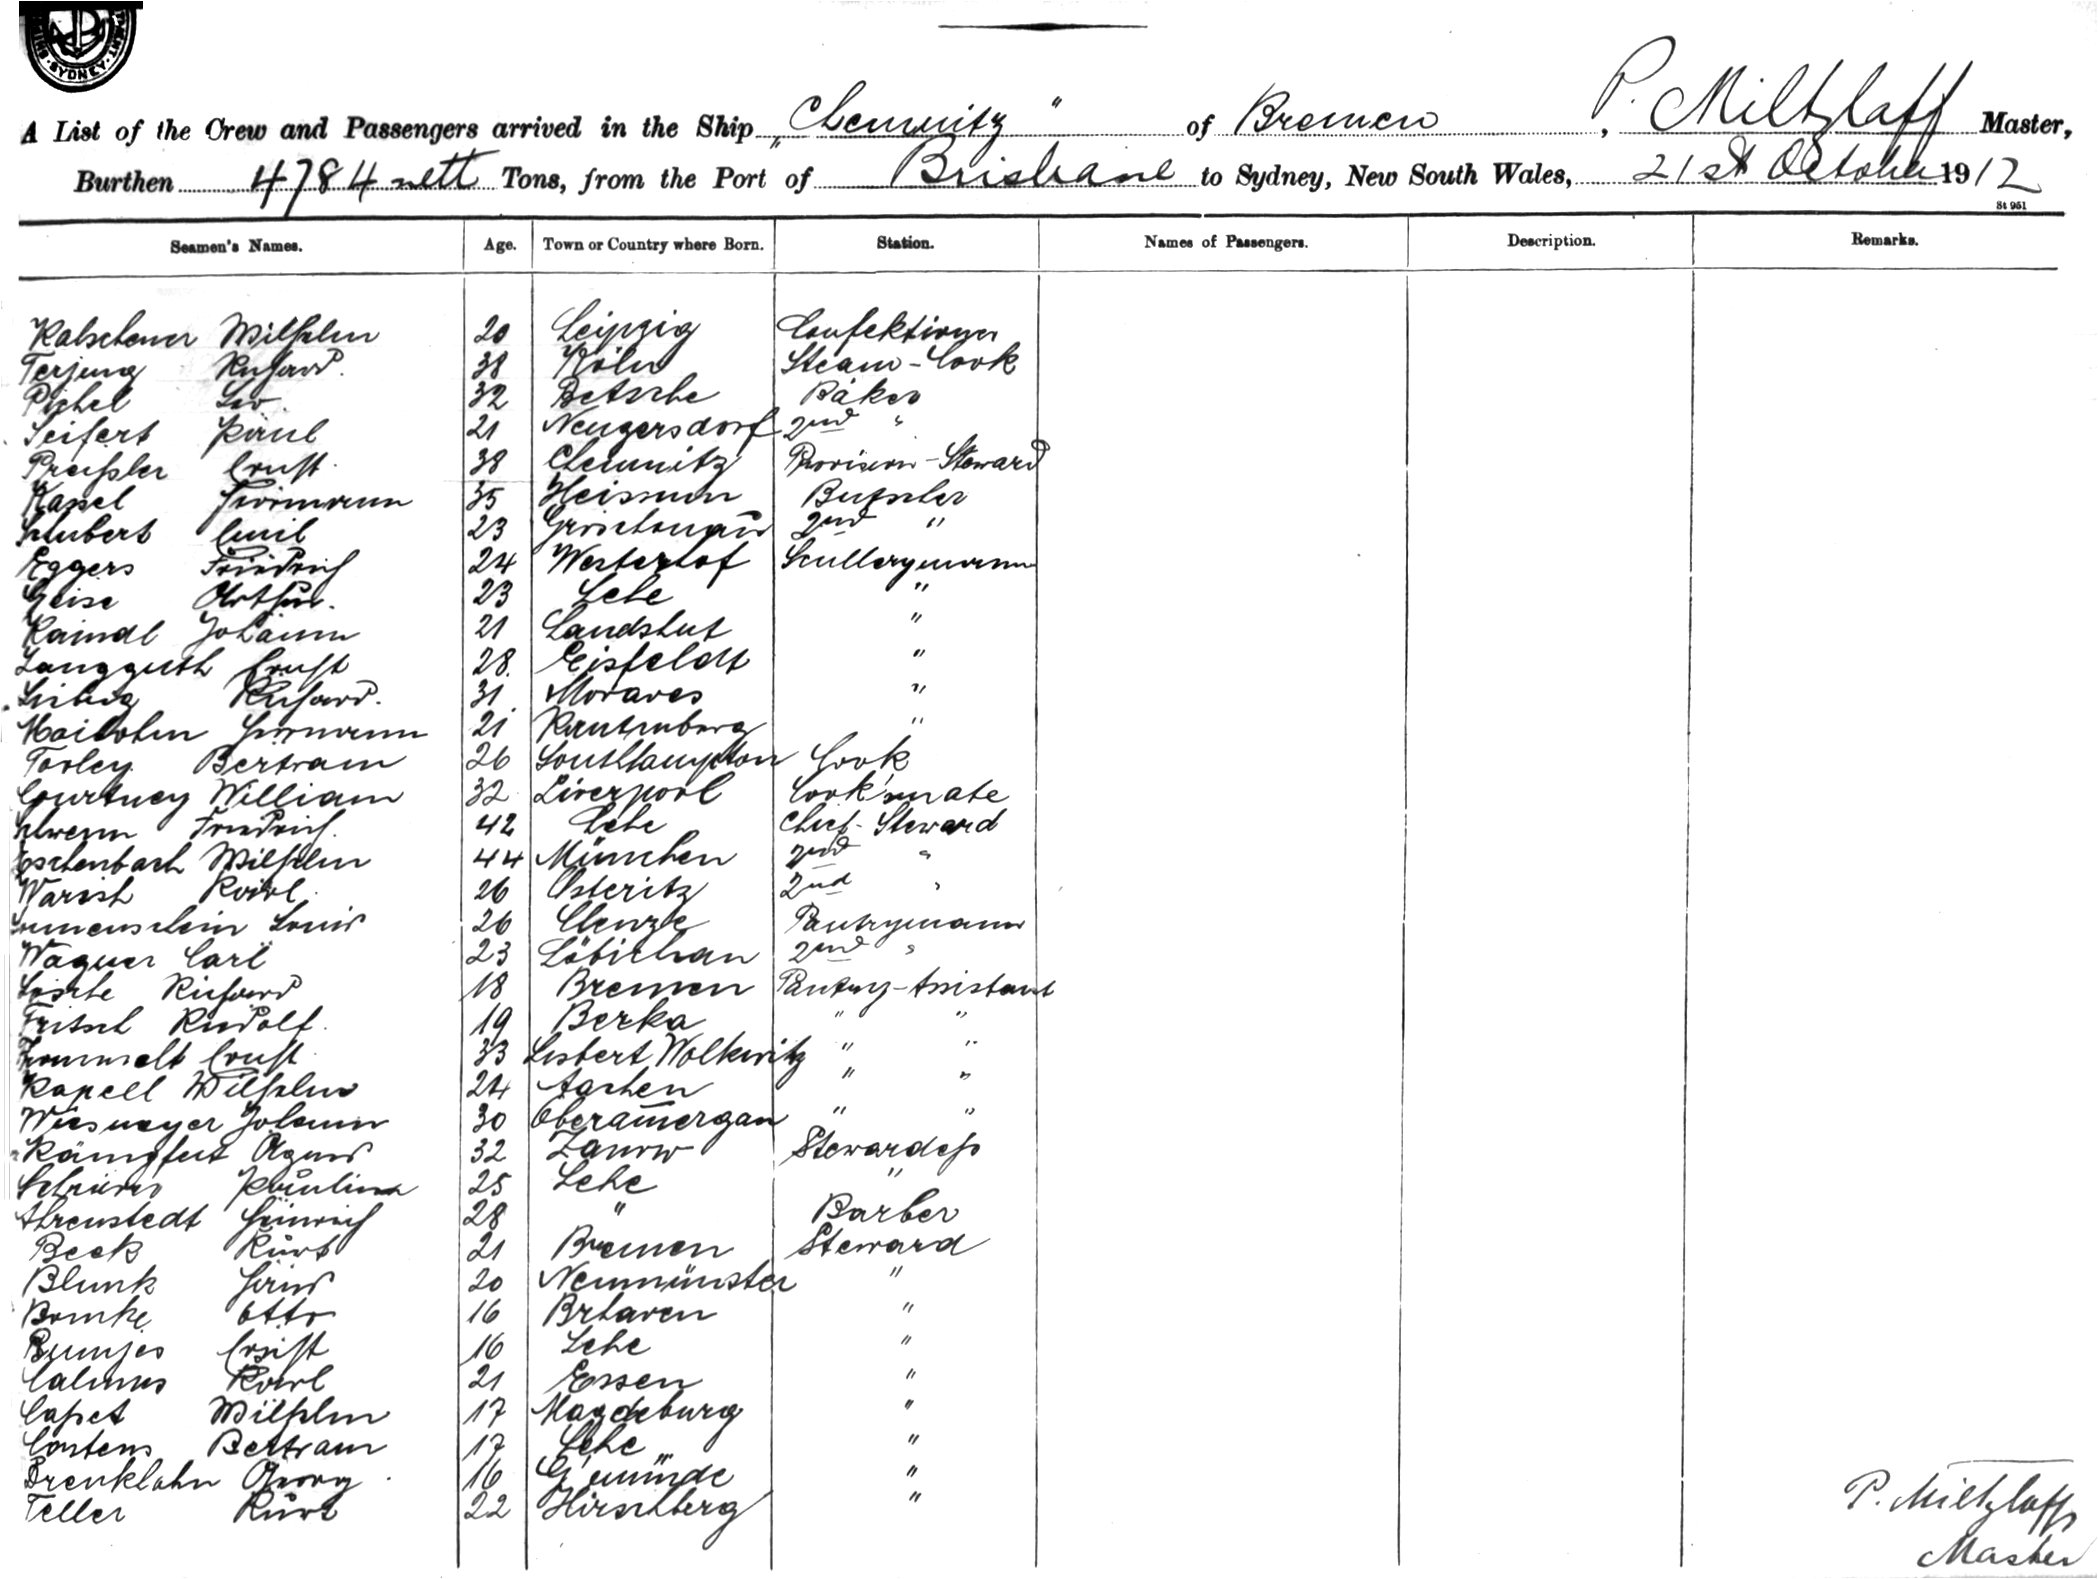 SYDNEY
A List of the Crew and Passengers arrived in the Ship „Chemnitz" of Bremen, P. Miltzlaff Master,
Burthen 4784 nett Tons, from the Port of Brisbane to Sydney, New South Wales, 21st October 1912
St 951
Seamen's Names. Age. Town or Country where Born. Station. Names of Passengers. Description. Remarks.
Wilhelm 20 Leipzig
Terjung Richard. 38 Köln Steam-Cook
Pichel Leo. 32 Betsche Bäker
Seifert Paul 21 Neugersdorf 2nd "
Preißler Ernst. 38 Chemnitz Provision-Steward
Kassel Hermann 35 Heissum Butscher
Schubert Emil 23 Grosschönau 2nd "
Eggers Friedrich 24 Westerhof Scullerymann
Geise Arthur. 23 Lehe "
Kaindl Johann 21 Landshut "
Langguth Ernst 28. Eisfeldt "
Richard. 31 Moraves "
Hermann 21 Rautenberg "
Torley Bertram 26 Southhampton Cook
Courtney William 32 Liverpool Cook'smate
Schwenn Friedrich. 42 Lehe Chief-Steward
Eschenbach Wilhelm 44 München 2nd "
Warsch Karl. 26 Osteritz 2nd "
Louis 26 Clenze Pantrymann
Wagner Carl 23 Löbichau 2nd "
Lösche Richard 18 Bremen Pantry-Assistant
Fritsch Rudolf. 19 Berka " "
Ernst 33 Wolkwitz " "
Kapell Wilhelm 24 Aachen " "
Wiesmeyer Johann 30 Oberam̄ergau " "
Kämpfert Agnes 32 Zanow Stewardeß
Pauline 25 Lehe "
Ahrenstedt Heinrich 28 " Barber
Beck Kurt 21 Bremen Steward
Blunk Hans 20 Neumünster "
Bomke Otto 16 Brhaven "
Bunjes Ernst 16 Lehe "
Calmus Karl 21 Essen "
Capet Wilhelm 17 Magdeburg "
Costens Bertram 17 Lehe "
Drenkhahn Georg. 16 G'münde "
Teller Kurt 22 Hirschberg "
P. Miltzlaff
Master